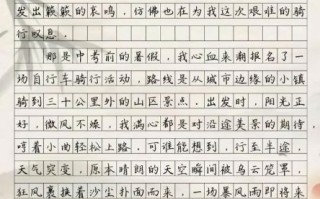 发出簌簌的哀鸣，仿佛也在为我这次艰难的骑
行叹息。
那是中考前的暑假，我心血来潮报名了一
场自行车骑行活动，路线是从城市边缘的小镇
骑到三十公里外的山区景点，出发时，阳光正
好，微风不燥，我满心都是对沿途美景的期待，
哼着小曲轻松上路，可谁能想到，行至半途，
天气突变，原本晴朗的天空瞬间被乌云笼罩，
狂风裹挟着沙尘扑面而来，一场暴风雨即将来